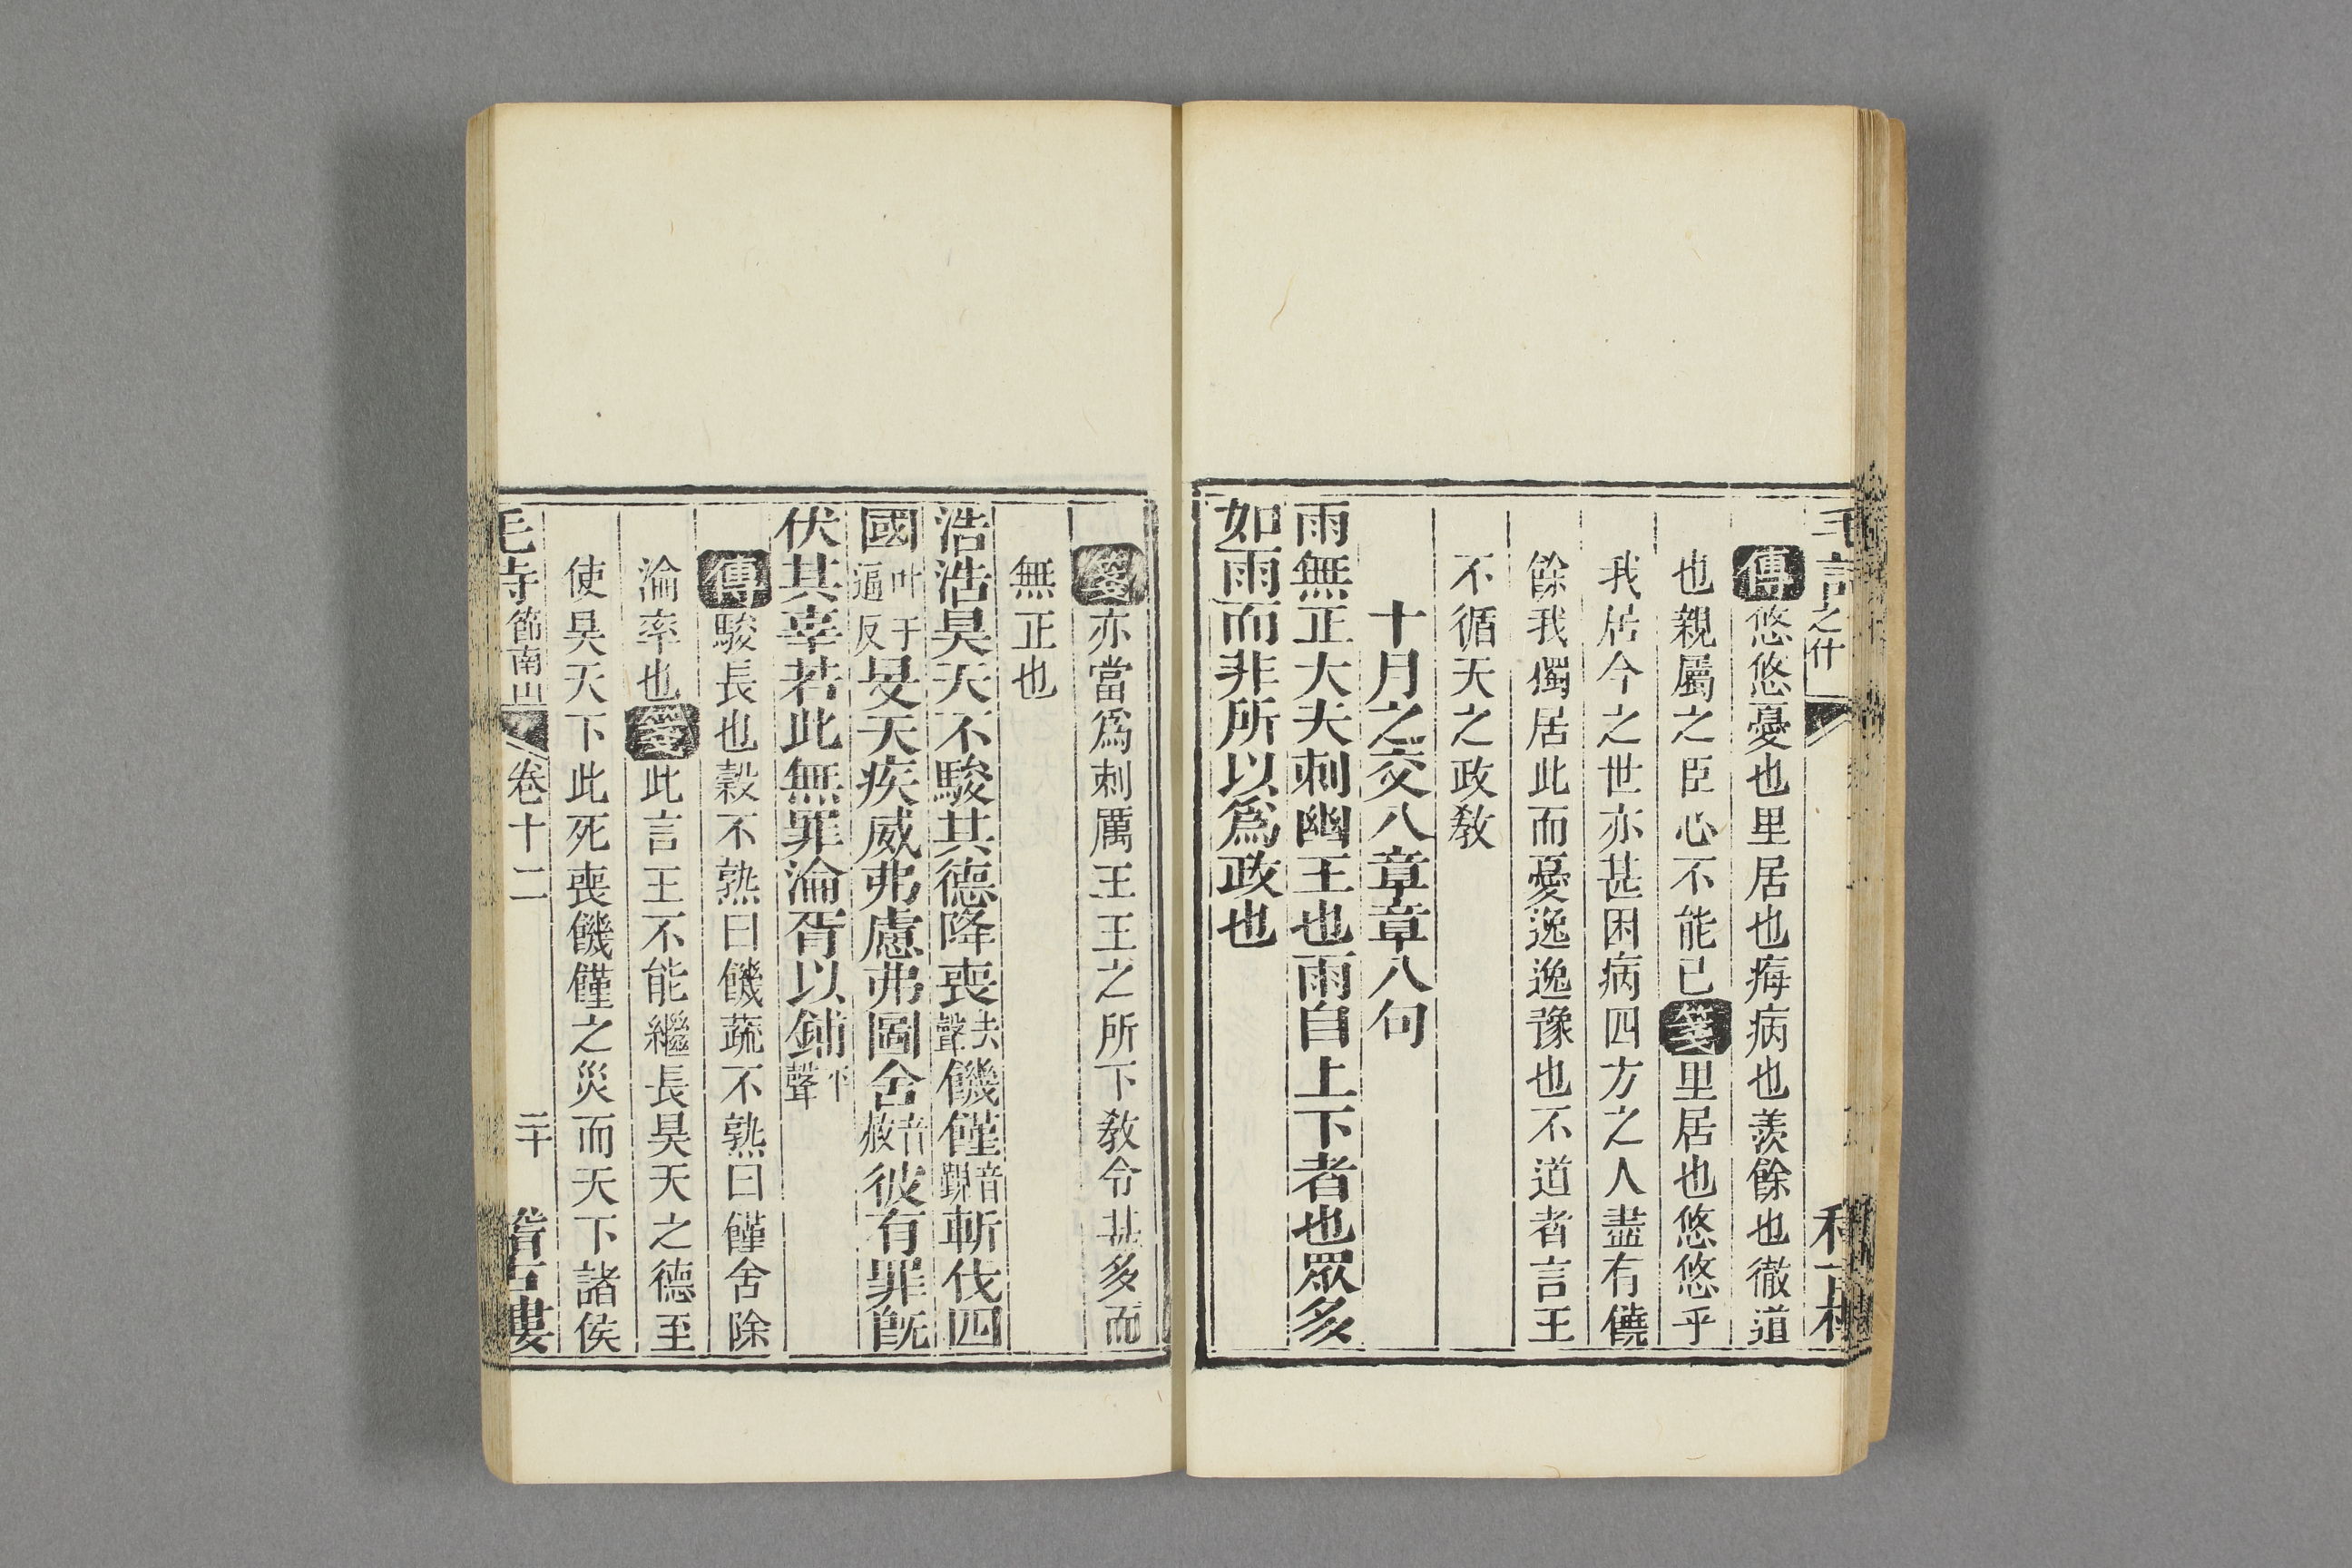 毛詩之什
傳悠悠憂也里居也痗病也羨餘也徹道
也親屬之臣心不能已箋里居也悠悠乎
我居今之世亦甚困病四方之人盡有饒
餘我獨居此而憂逸逸豫也不道者言王
不循天之政教
十月之交八章章八句
雨無正大夫刺幽王也雨自上下者也眾多
如雨而非所以爲政也
箋亦當爲刺厲王王之所下教令甚多而
無正也
浩浩昊天不駿其德降喪去聲饑饉音覲斬伐四
國叶于逼反旻天疾威弗慮弗圖舍音赦彼有罪旣
伏其辜若此無罪淪胥以鋪平聲
傳駿長也穀不熟曰饑蔬不熟曰饉舍除
淪率也箋此言王不能繼長昊天之德至
使昊天下此死喪饑饉之災而天下諸侯
毛詩節南山 卷十二 二十 稽古樓